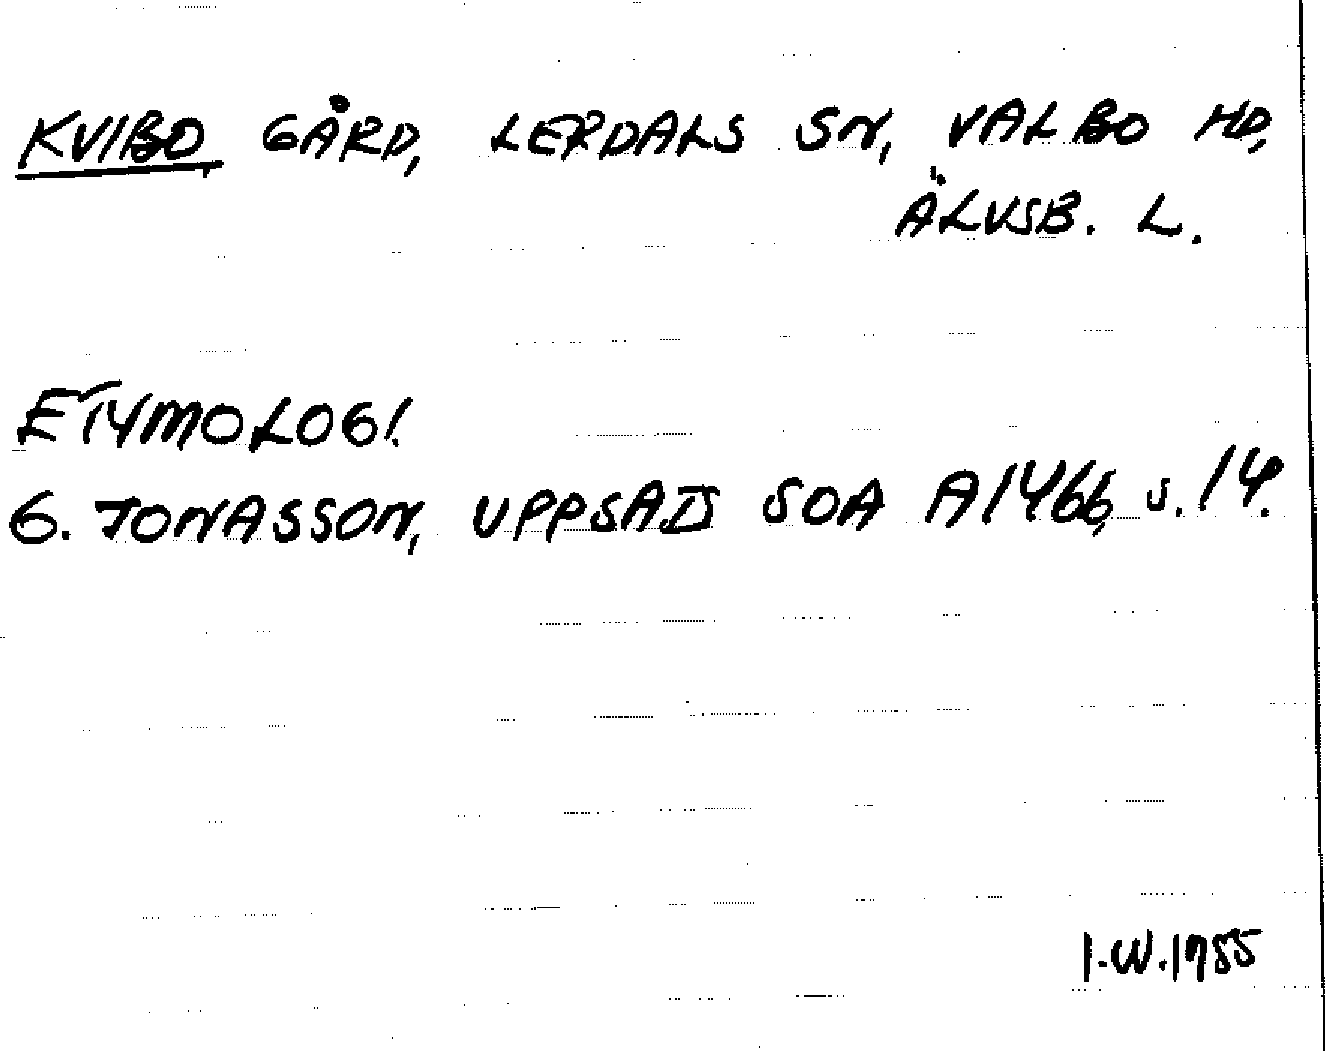 KVIBO, GÅRD, LERDALS SN, VALBO HD,
ÄLVSB. L.
ETYMOLOGI.
G. JONASSON, UPPSATS SOA A1466, s. 14.
I.W. 1985